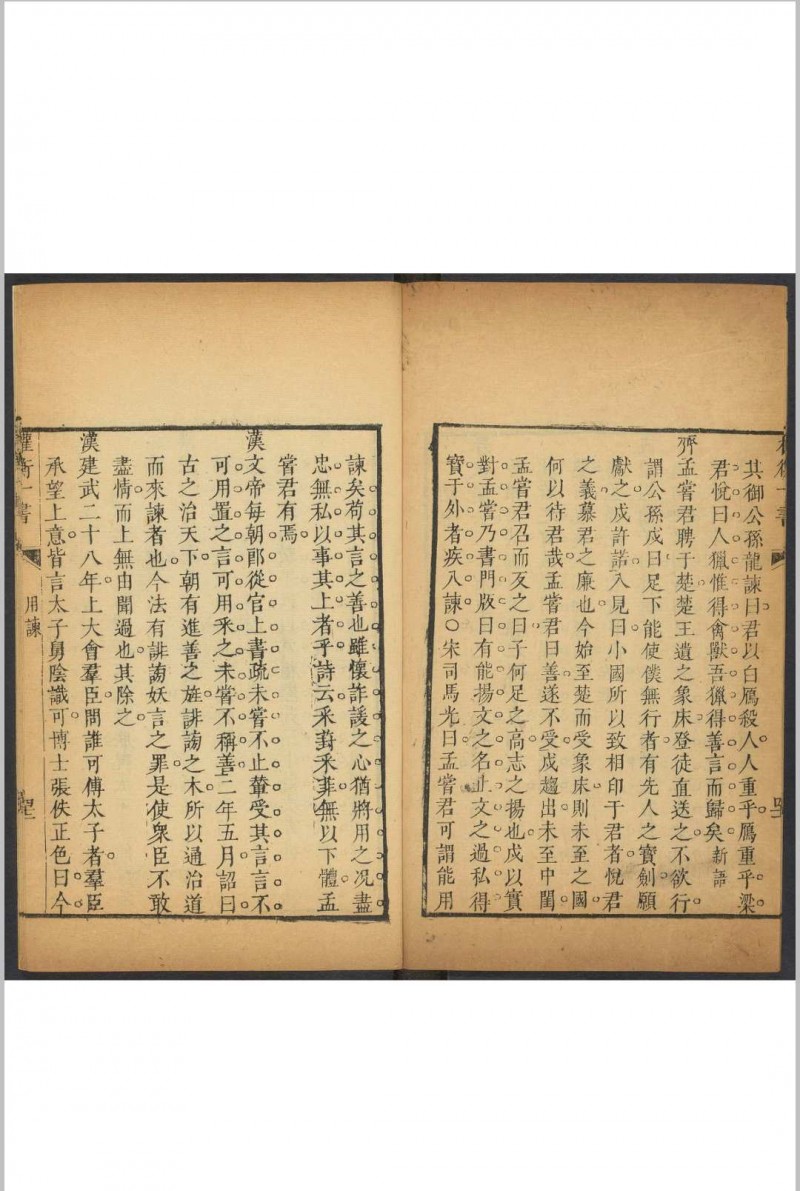 其御公孫龍諫曰君以白鴈殺人人重乎鴈重乎梁
君悅曰人獵惟得禽獸吾獵得善言而歸矣新語
齊孟甞君聘于楚楚王遺之象床登徒直送之不欲行
謂公孫戍曰足下能使僕無行者有先人之寶劍願
獻之戍許諾入見曰小國所以致相印于君者悅君
之義慕君之廉也今始至楚而受象床則未至之國
何以待君哉孟甞君曰善遂不受戍趨出未至中閨
孟甞君召而反之曰子何足之高志之揚也戍以實
對孟甞乃書門版曰有能揚文之名止文之過私得
寶于外者疾入諫○宋司馬光曰孟甞君可謂能用
諫矣苟其言之善也雖懷詐諼之心猶將用之况盡
忠無私以事其上者乎詩云采葑采菲無以下體孟
甞君有焉
漢文帝每朝郎從官上書疏未甞不止輦受其言言不
可用置之言可用采之未甞不稱善二年五月詔曰
古之治天下朝有進善之旌誹謗之木所以通治道
而來諫者也今法有誹謗妖言之罪是使衆臣不敢
盡情而上無由聞過也其除之
漢建武二十八年上大會羣臣問誰可傅太子者羣臣
承望上意皆言太子舅陰識可博士張佚正色曰今
權衡一書
用諫